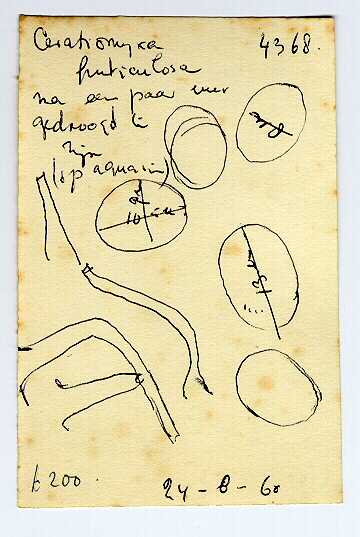 Ceratiomyxa
fruticulosa
4368.
na een paar uur
gedroogd te
zijn
(op aquarium)
10
13
t 200.
24-8-60